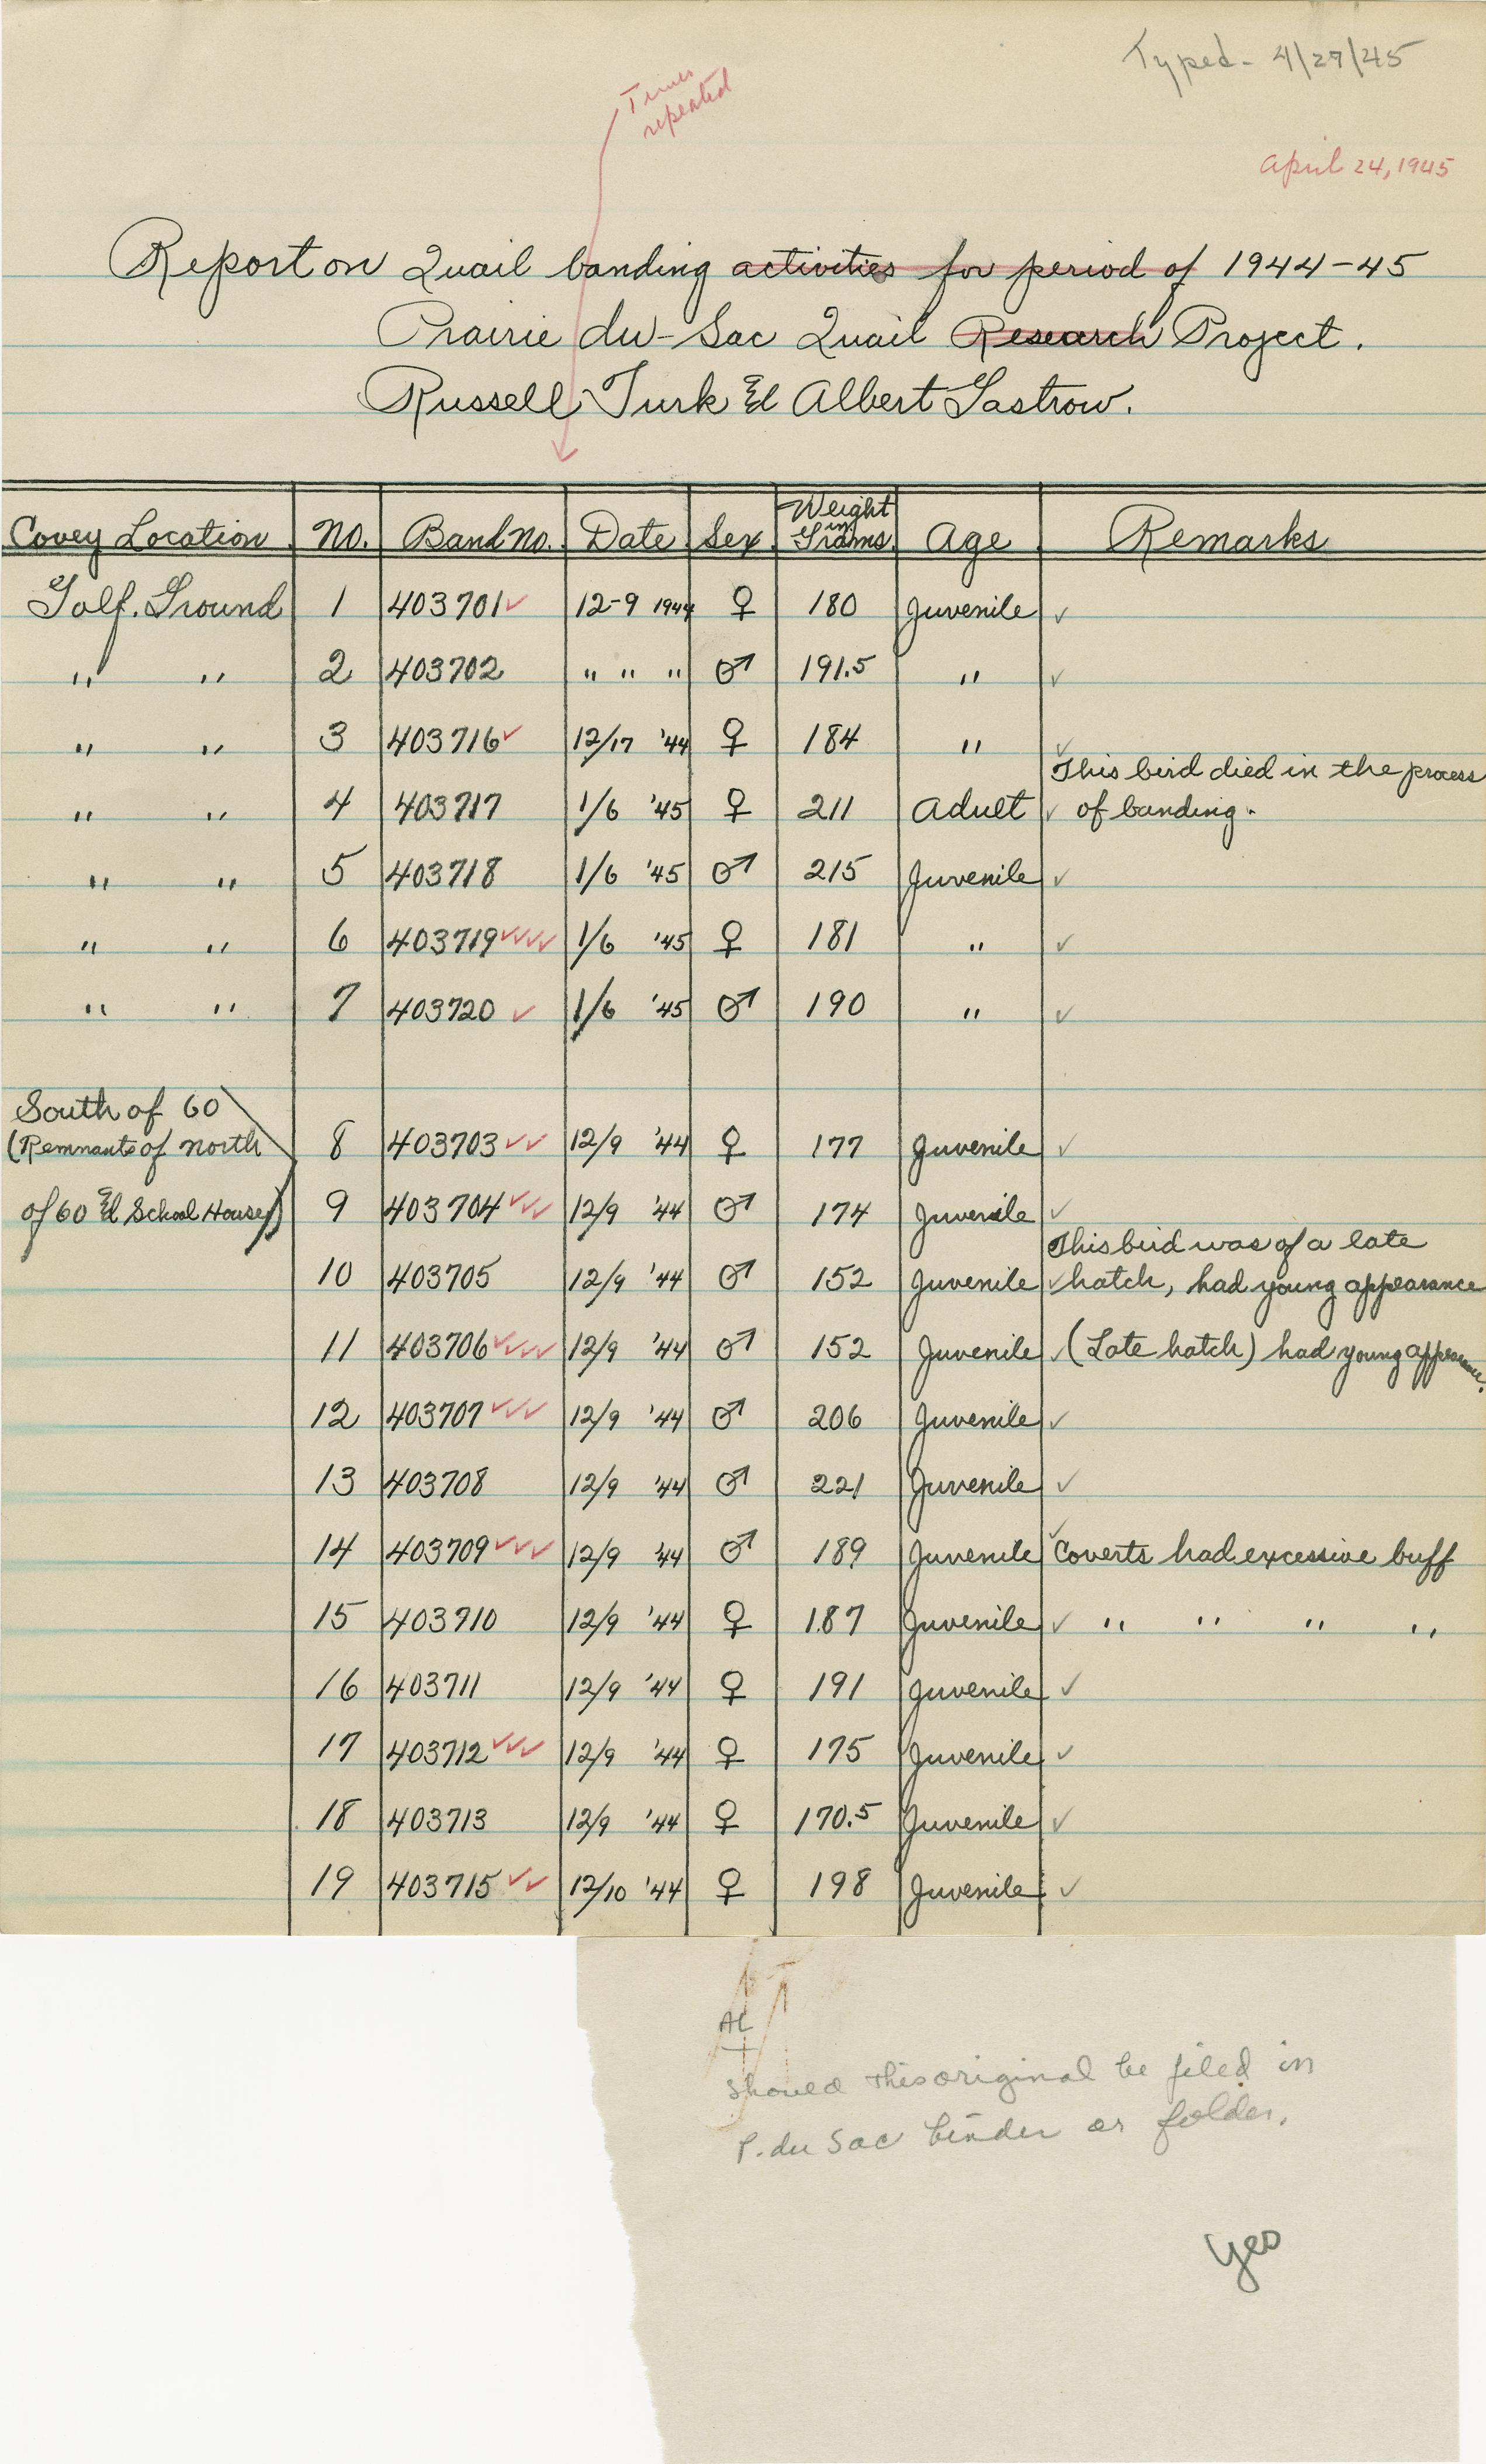 Typed - 4/27/45
Times
repeated
April 24, 1945
Report on Quail banding activities for period of 1944-45
Prairie du-Sac Quail Research Project.
Russell Turk & Albert Gastrow.
Covey Location No. Band No. Date Sex Weight in Grams Age Remarks
Golf. Ground 1 403701 ✓ 12-9 1944 ♀ 180 Juvenile ✓
" " 2 403702 " " " ♂ 191.5 " ✓
" " 3 403716 ✓ 12/17 '44 ♀ 184 " ✓
This bird died in the process
" " 4 403717 1/6 '45 ♀ 211 Adult ✓ of banding.
" " 5 403718 1/6 '45 ♂ 215 Juvenile ✓
" " 6 403719 ✓✓✓✓ 1/6 '45 ♀ 181 " ✓
" " 7 403720 ✓ 1/6 '45 ♂ 190 " ✓
South of 60
(Remnants of north 8 403703 ✓✓ 12/9 '44 ♀ 177 Juvenile ✓
of 60 & School House) 9 403704 ✓✓✓ 12/9 '44 ♂ 174 Juvenile ✓
This bird was of a late
10 403705 12/9 '44 ♂ 152 Juvenile ✓ hatch, had young appearance
11 403706 ✓✓✓✓ 12/9 '44 ♂ 152 Juvenile ✓ (Late hatch) had young appearance.
12 403707 ✓✓✓ 12/9 '44 ♂ 206 Juvenile ✓
13 403708 12/9 '44 ♂ 221 Juvenile ✓
14 403709 ✓✓✓ 12/9 '44 ♂ 189 Juvenile ✓ Coverts had excessive buff
15 403710 12/9 '44 ♀ 187 Juvenile ✓ " " " "
16 403711 12/9 '44 ♀ 191 Juvenile ✓
17 403712 ✓✓✓ 12/9 '44 ♀ 175 Juvenile ✓
18 403713 12/9 '44 ♀ 170.5 Juvenile ✓
19 403715 ✓✓ 12/10 '44 ♀ 198 Juvenile ✓
AL
Should this original be filed in
P. du Sac binder or folder.
Yes